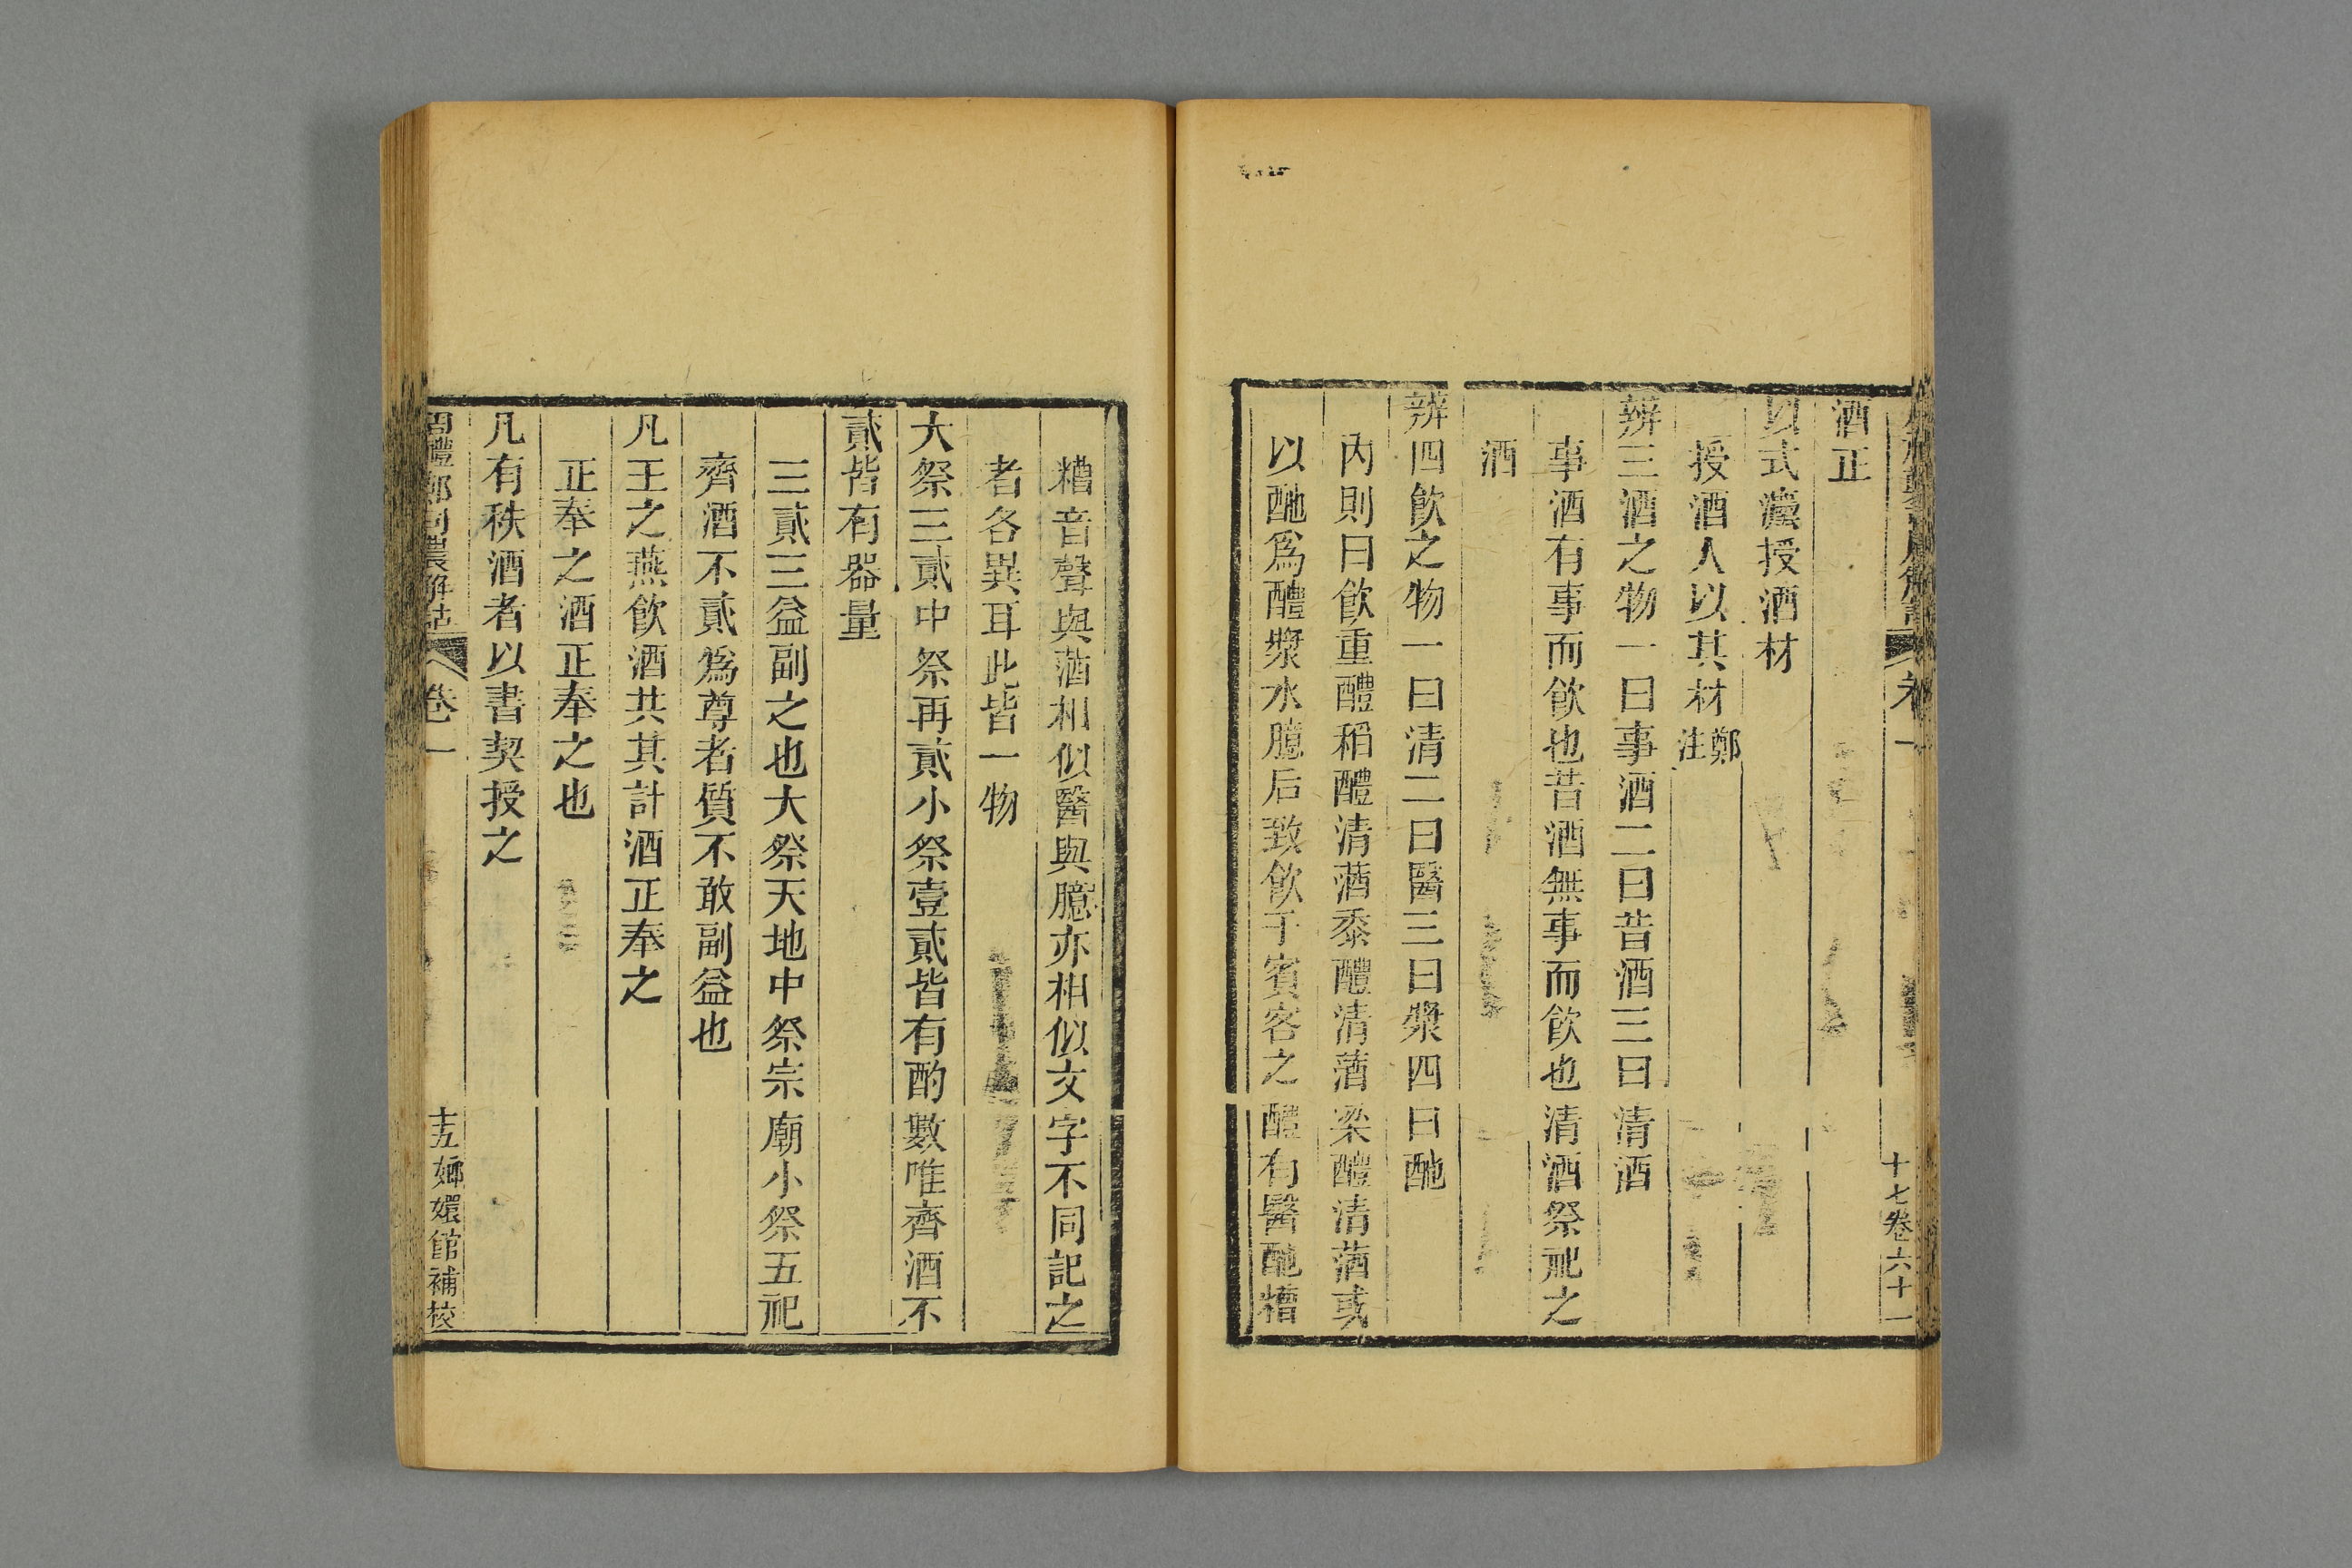 酒正
以式灋授酒材
授酒人以其材鄭注
辨三酒之物一曰事酒二曰昔酒三曰清酒
事酒有事而飲也昔酒無事而飲也清酒祭祀之
酒
辨四飲之物一曰清二曰醫三曰漿四曰酏
內則曰飲重醴稻醴清䤖黍醴清䤖粱醴清䤖或
以酏爲醴漿水臆后致飲于賓客之醴有醫酏糟
糟音聲與䤖相似醫與臆亦相似文字不同記之
者各異耳此皆一物
大祭三貳中祭再貳小祭壹貳皆有酌數唯齊酒不
貳皆有器量
三貳三益副之也大祭天地中祭宗廟小祭五祀
齊酒不貳爲尊者質不敢副益也
凡王之燕飲酒共其計酒正奉之
正奉之酒正奉之也
凡有秩酒者以書契授之
周禮鄭司農解詁 卷一 十五 嫏嬛館補校
卷一 十七卷六十一